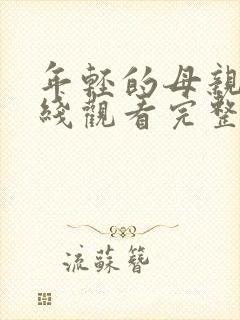 年輕的母親
綫觀看完整
流蘇簪